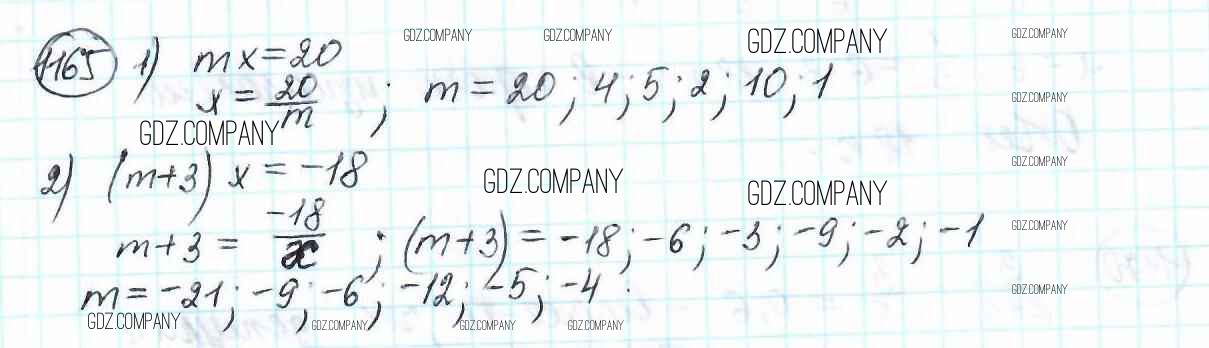 1165 1) mx = 20 GDZ.COMPANY GDZ.COMPANY GDZ.COMPANY GDZ.COMPANY
x = 20/m ; m = 20 ; 4 ; 5 ; 2 ; 10 ; 1 GDZ.COMPANY
GDZ.COMPANY
2) (m+3) x = -18 GDZ.COMPANY GDZ.COMPANY GDZ.COMPANY
m+3 = -18/x ; (m+3) = -18 ; -6 ; -3 ; -9 ; -2 ; -1 GDZ.COMPANY
m = -21 ; -9 ; -6 ; -12 ; -5 ; -4 . GDZ.COMPANY
GDZ.COMPANY GDZ.COMPANY GDZ.COMPANY GDZ.COMPANY